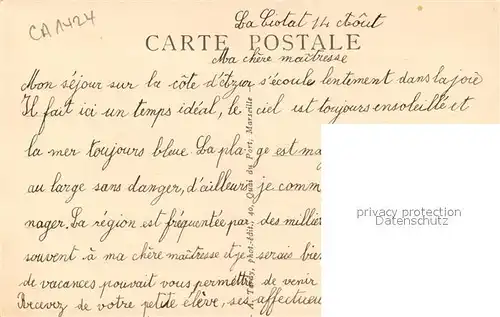 CA1424
La Ciotat 14 Août
CARTE POSTALE
Ma chère maîtresse
Mon séjour sur la côte d'Azur s'écoule lentement dans la joie
Il fait ici un temps idéal, le ciel est toujours ensoleillé et
la mer toujours bleue. La plage est
au large sans danger, d'ailleurs je
nager. La région est fréquentée par des
souvent à ma chère maîtresse et je serais
de vacances pouvait vous permettre de venir
Recevez de votre petite élève, ses
phot-édit, 40, Quai du Port, Marseille
privacy protection
Datenschutz